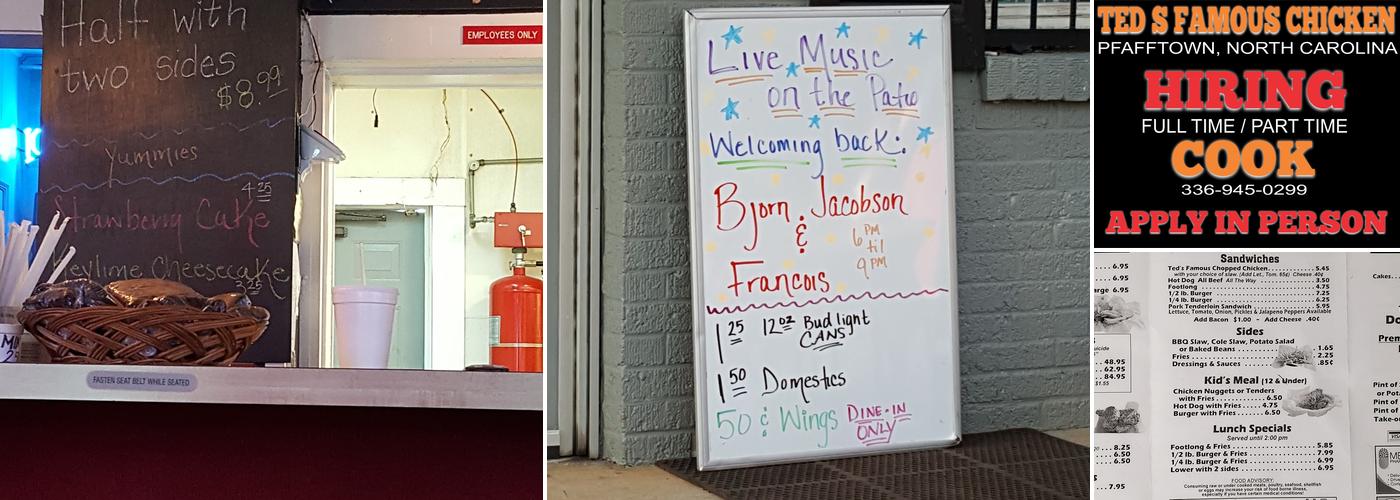 Half with
two sides
$8.99
Yummies
4.25
Strawberry Cake
Keylime Cheesecake
3.25
EMPLOYEES ONLY
FASTEN SEAT BELT WHILE SEATED
Live Music
on the Patio
Welcoming back:
Bjorn Jacobson
&
Francois
6 PM
til
9 PM
1 25 12 oz Bud light
CANS
1 50 Domestics
50 ¢ Wings DINE-IN
ONLY
TED S FAMOUS CHICKEN
PFAFFTOWN, NORTH CAROLINA
HIRING
FULL TIME / PART TIME
COOK
336-945-0299
APPLY IN PERSON
... 6.95
... 6.95
arge 6.95
48.95
62.95
84.95
$1.55
8.25
6.50
6.50
7.95
Sandwiches
Ted's Famous Chopped Chicken 5.45
with your choice of slaw. (Add Let., Tom. 65¢) Cheese .40¢
Hot Dog All Beef All The Way 3.50
Footlong 4.75
1/2 lb. Burger 7.25
1/4 lb. Burger 6.25
Pork Tenderloin Sandwich 5.95
Lettuce, Tomato, Onion, Pickles & Jalapeno Peppers Available
Add Bacon $1.00 - Add Cheese .40¢
Sides
BBQ Slaw, Cole Slaw, Potato Salad
or Baked Beans 1.65
Fries 2.25
Dressings & Sauces .85¢
Kid's Meal (12 & Under)
Chicken Nuggets or Tenders
with Fries 6.50
Hot Dog with Fries 4.75
Burger with Fries 6.50
Lunch Specials
Served until 2:00 pm
Footlong & Fries 5.85
1/2 lb. Burger & Fries 7.99
1/4 lb. Burger & Fries 6.99
Lower with 2 sides 6.95
FOOD ADVISORY:
Consuming raw or under cooked meats, poultry, seafood, shellfish
or eggs may increase your risk of food borne illness,
especially if you have certain medical conditions
Cakes...
Pint of
Pint of
Pint of